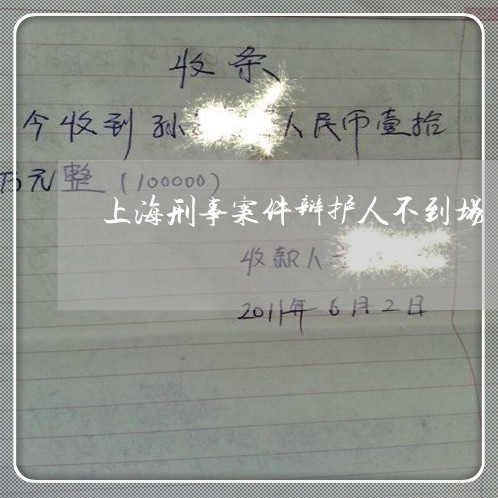 收条
今收到孙 人民币壹拾
万元整(100000)
上海刑事案件辩护人不到场
收款人
2011年6月2日